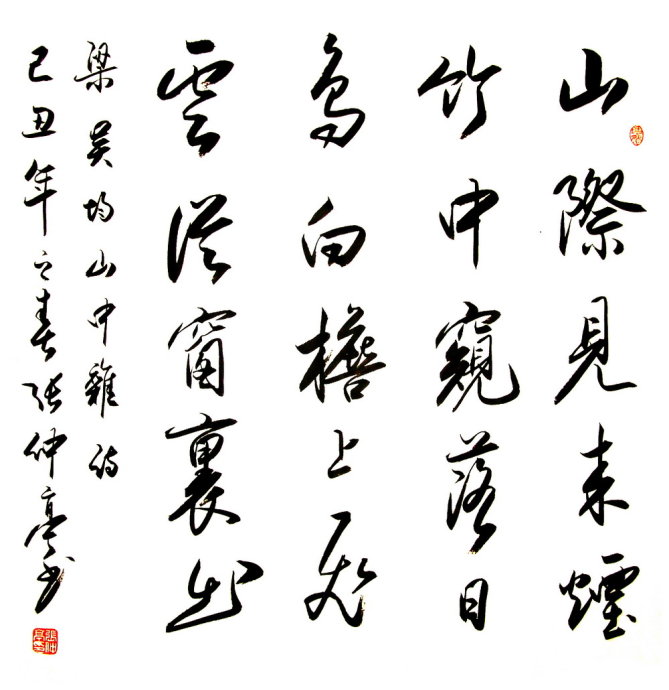 山際見来煙
竹中窺落日
鳥向檐上飛
雲從窗裏出
梁吴均山中雜詩
己丑年之春張仲亭書